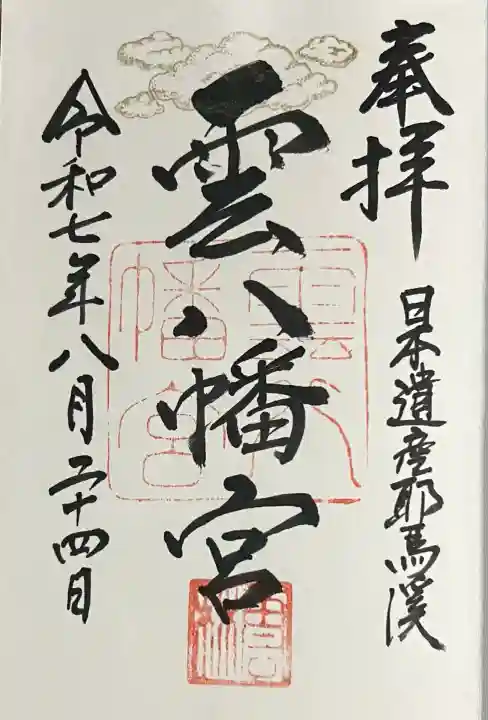 奉拝
日本遺産耶馬溪
雲八幡宮
雲八幡宮
令和七年八月二十四日